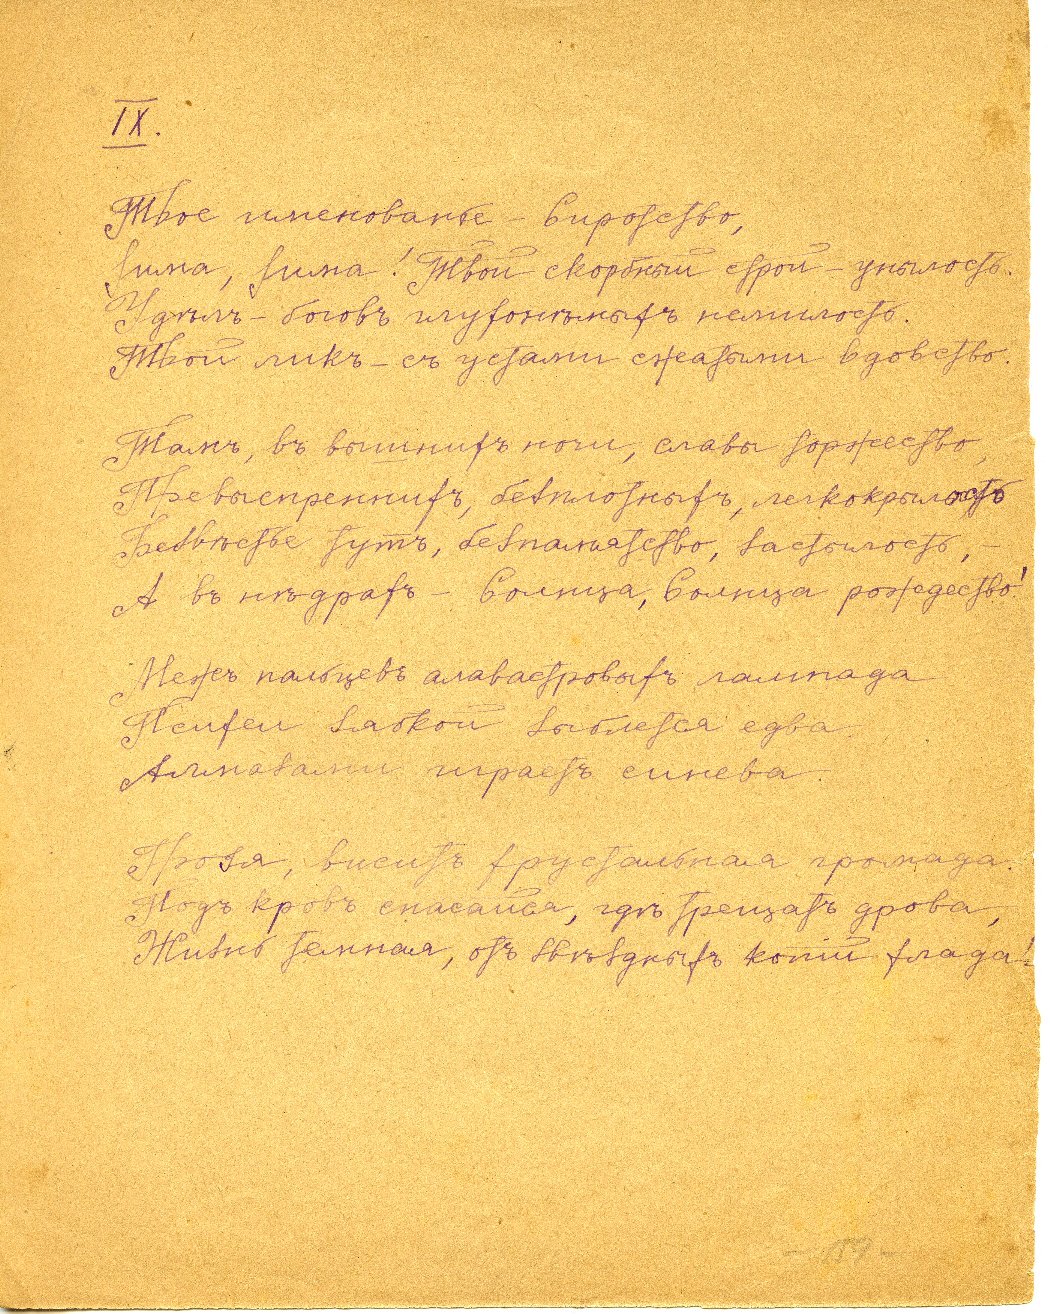 IX.
Твое именованье – Сиротство,
Зима, Зима! Твой скорбный строй – унылость.
Удѣлъ – боговъ глухонѣмыхъ немилость.
Твой ликъ – съ устами сжатыми вдовство.
Тамъ, въ вышнихъ ночи, славы торжество,
Превыспреннихъ, безплотныхъ, легкокрылость
Безвѣстье тутъ, безпамятство, застылость, –
А въ нѣдрахъ – Солнца, Солнца рождество!
Межъ пальцевъ алавастровыхъ лампада
Психеи зябкой зыблется едва.
Алмазами играетъ синева.
Грозя, виситъ хрустальная громада.
Подъ кровъ спасайся, гдѣ трещатъ дрова,
Жизнь темная, отъ звѣздныхъ копій хлада!